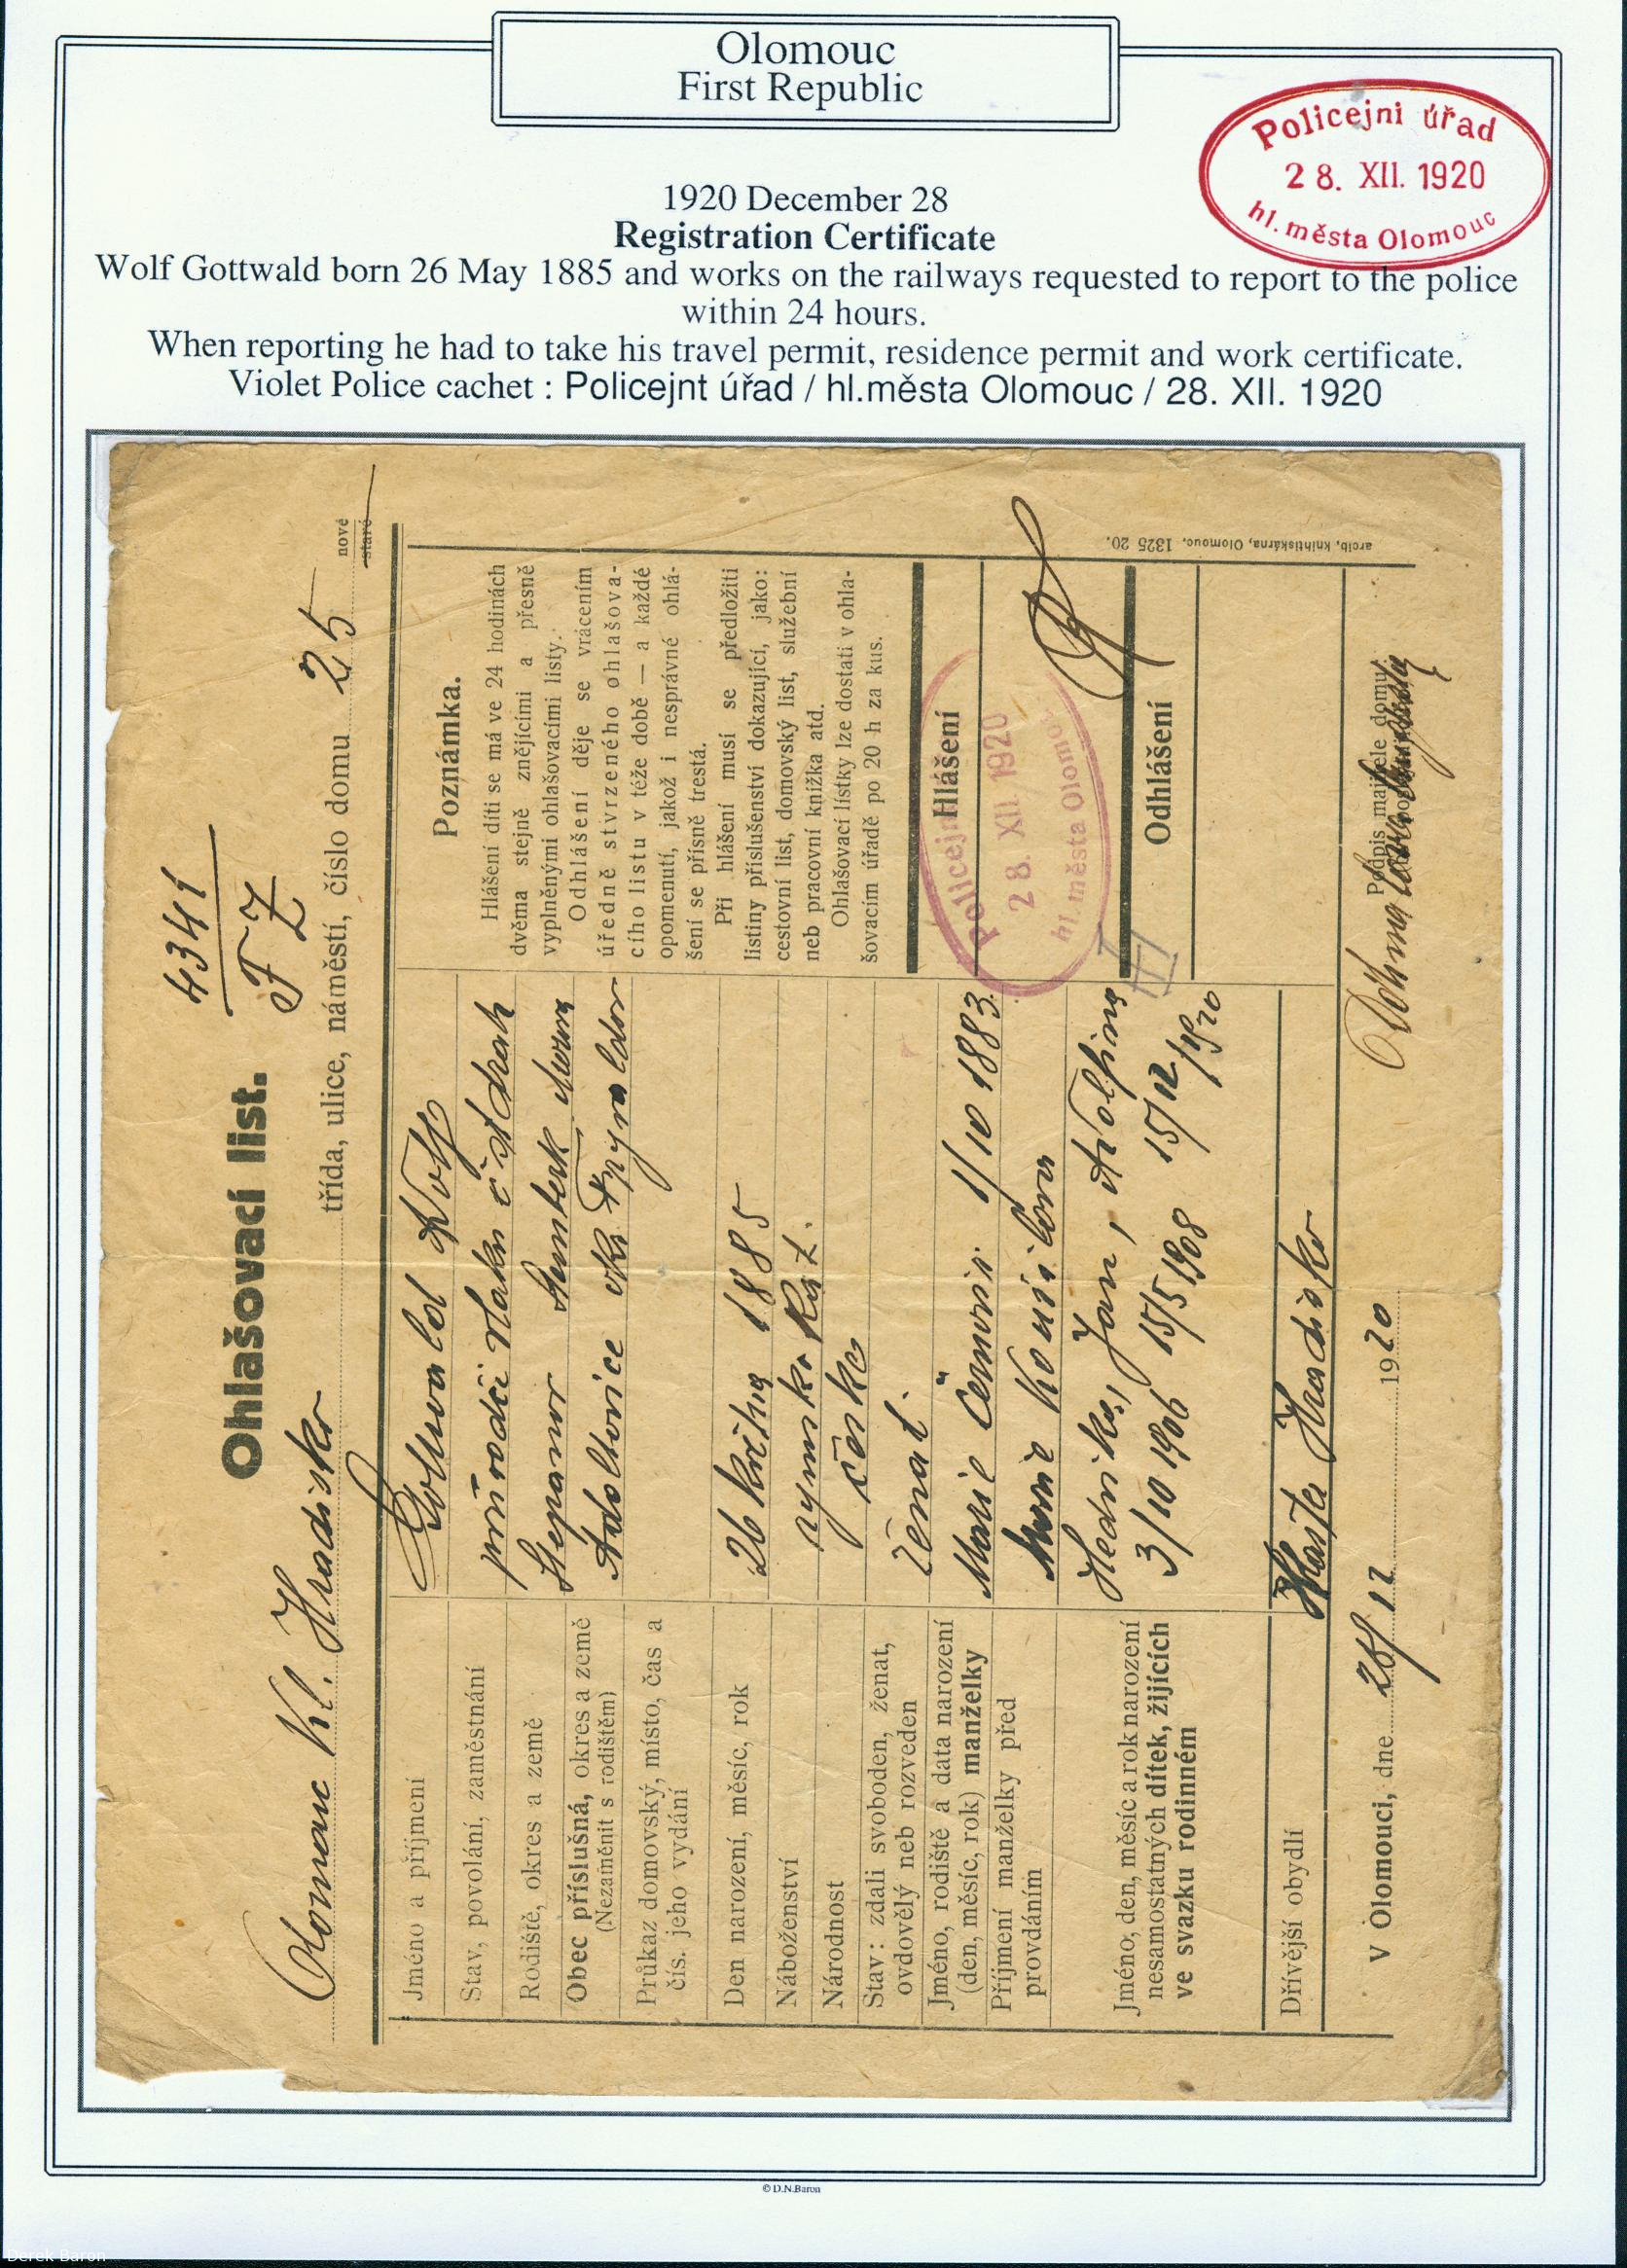 Olomouc
First Republic
Policejni úřad
28. XII. 1920
hl. města Olomouc
1920 December 28
Registration Certificate
Wolf Gottwald born 26 May 1885 and works on the railways requested to report to the police
within 24 hours.
When reporting he had to take his travel permit, residence permit and work certificate.
Violet Police cachet : Policejnt úřad / hl.města Olomouc / 28. XII. 1920
4341
Ohlašovací list.
F Z
Olomouc Kl. Hradisko třída, ulice, náměstí, číslo domu 25 nové
staré
Jméno a příjmení
Gottwald Wolf
Stav, povolání, zaměstnání
průvodčí vlaku č st drah
Rodiště, okres a země
Obec příslušná, okres a země
(Nezaměnit s rodištěm)
Adoltovice
Průkaz domovský, místo, čas a
čís. jeho vydání
Den narození, měsíc, rok
26 května 1885
Náboženství
řymsko kat.
Národnost
česko
Stav: zdali svoboden, ženat,
ovdovělý neb rozveden
ženat.
Jméno, rodiště a data narození
(den, měsíc, rok) manželky
Marie 1/10 1883
Příjmení manželky před
provdáním
Marie
Jméno, den, měsíc a rok narození
nesamostatných dítek, žijících
ve svazku rodinném
Hedvika, Jan,
3/10 1906 15/5 1908 15/12 1920
Dřívější obydlí
Hradisko
V Olomouci, dne 28/12 1920
Poznámka.
Hlášení díti se má ve 24 hodinách
dvěma stejně znějícími a přesně
vyplněnými ohlašovacími listy.
Odhlášení děje se vrácením
úředně stvrzeného ohlašova-
cího listu v téže době — a každé
opomenutí, jakož i nesprávné ohlá-
šení se přísně trestá.
Při hlášení musí se předložiti
listiny příslušenství dokazující, jako:
cestovní list, domovský list, služební
neb pracovní knížka atd.
Ohlašovací lístky lze dostati v ohla-
šovacím úřadě po 20 h za kus.
Hlášení
Policejní
28. XII. 1920
hl. města Olomouc
Odhlášení
Podpis majitele domu
knihtiskárna, Olomouc. 1325 20.
© D.N.Baron
Derek Baron